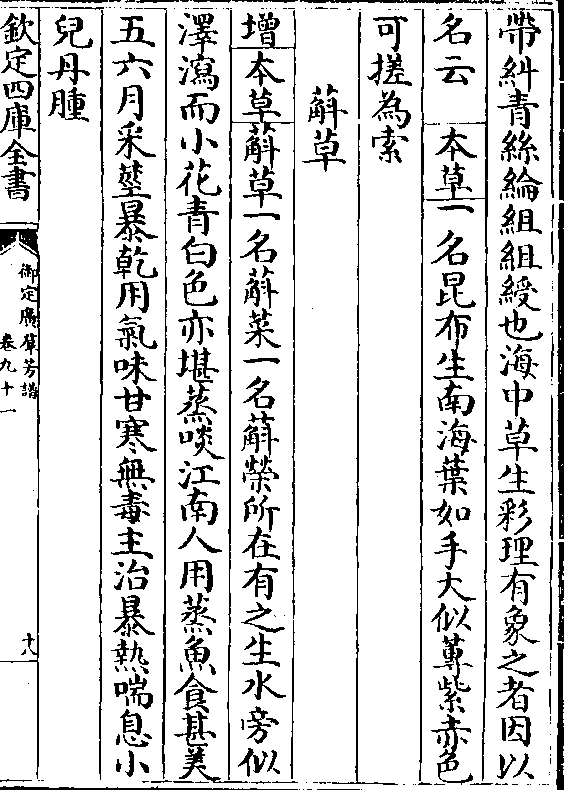 帶糾青絲綸組組綬也海中草生彩理有象之者因以
名云　本草一名昆布生南海葉如手大似蓴紫赤色
可搓為索
蔛草
增本草蔛草一名蔛菜一名蔛榮所在有之生水旁似
澤瀉而小花青白色亦堪蒸啖江南人用蒸魚食甚美
五六月采莖暴乾用氣味甘寒無毒主治暴熱喘息小
兒丹腫
欽定四庫全書
御定廣羣芳譜
卷九十一
十八